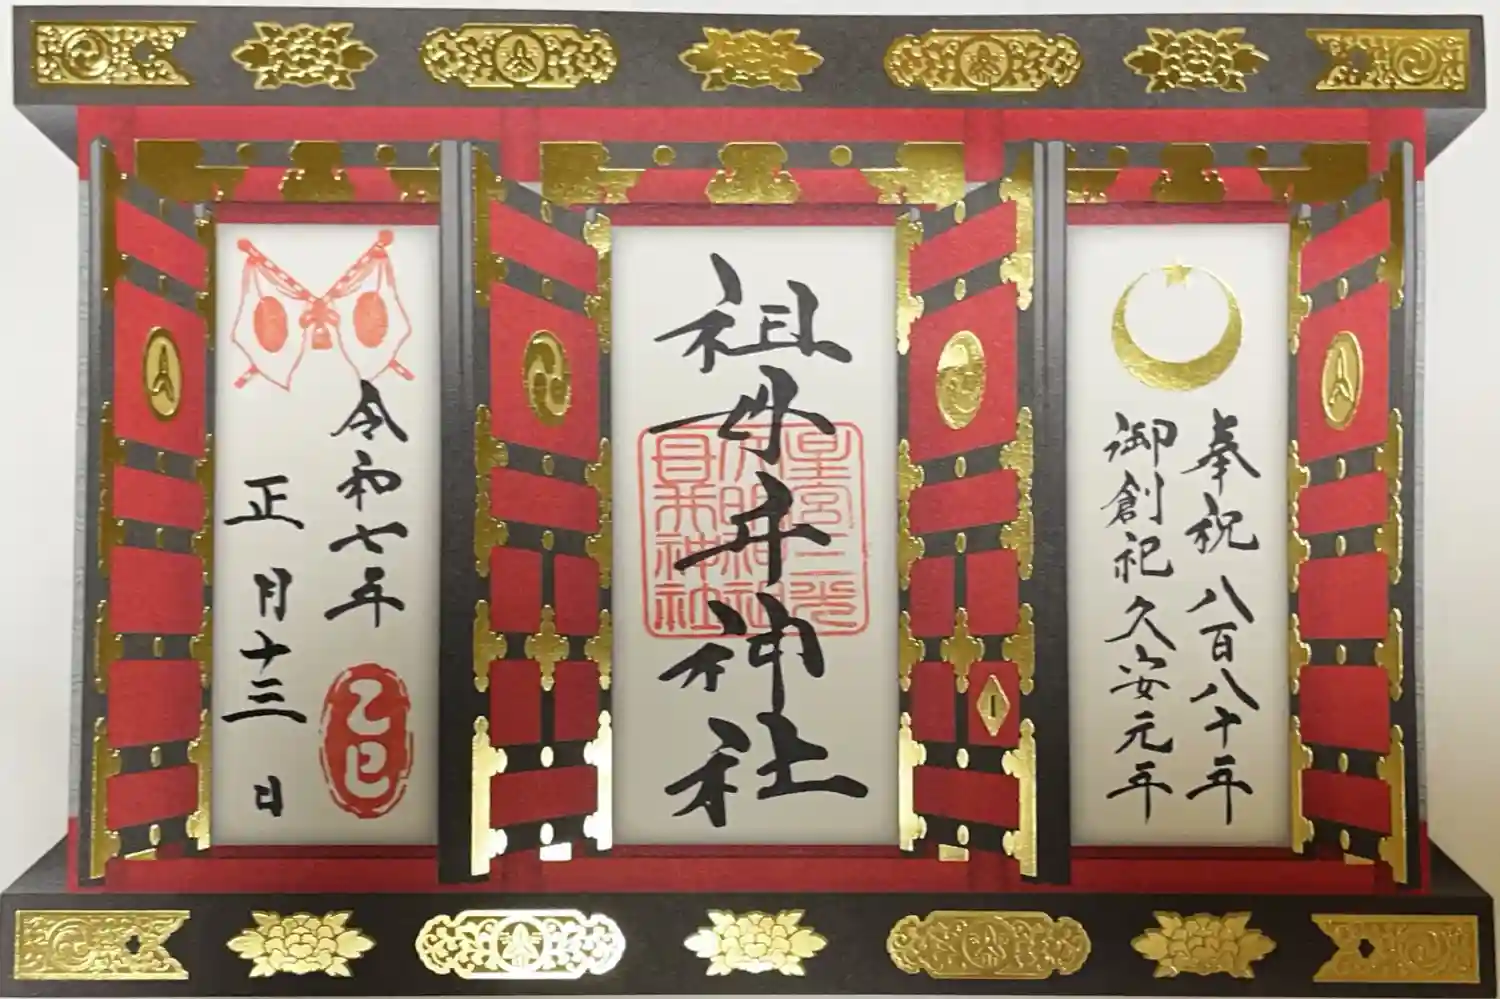 奉祝 八百八十年
御創祀 久安元年
祖母井神社
星宮三光
明神祖
母井神社
令和七年
正月十三日
乙巳